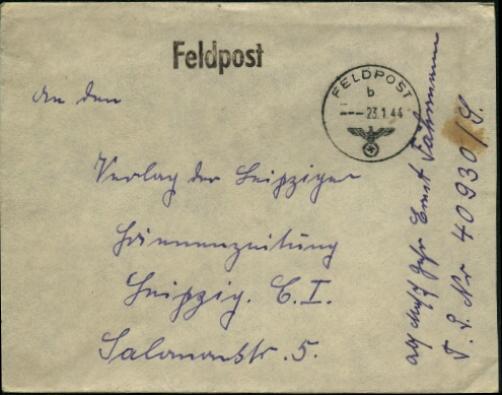 Feldpost
FELDPOST
b
23.1.44
An den
Verlag der Leipziger
Leipzig. C. I.
Salomonstr. 5.
Ernst
F. P. Nr 40930/S.